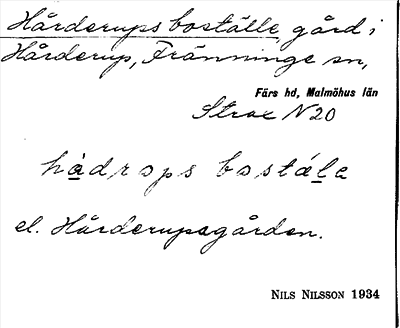 Hårderups boställe, gård i
Hårderup, Fränninge sn,
Färs hd, Malmöhus län
Strax N 20
hàdrops bostála
el. Hårderupsgården.
NILS NILSSON 1934